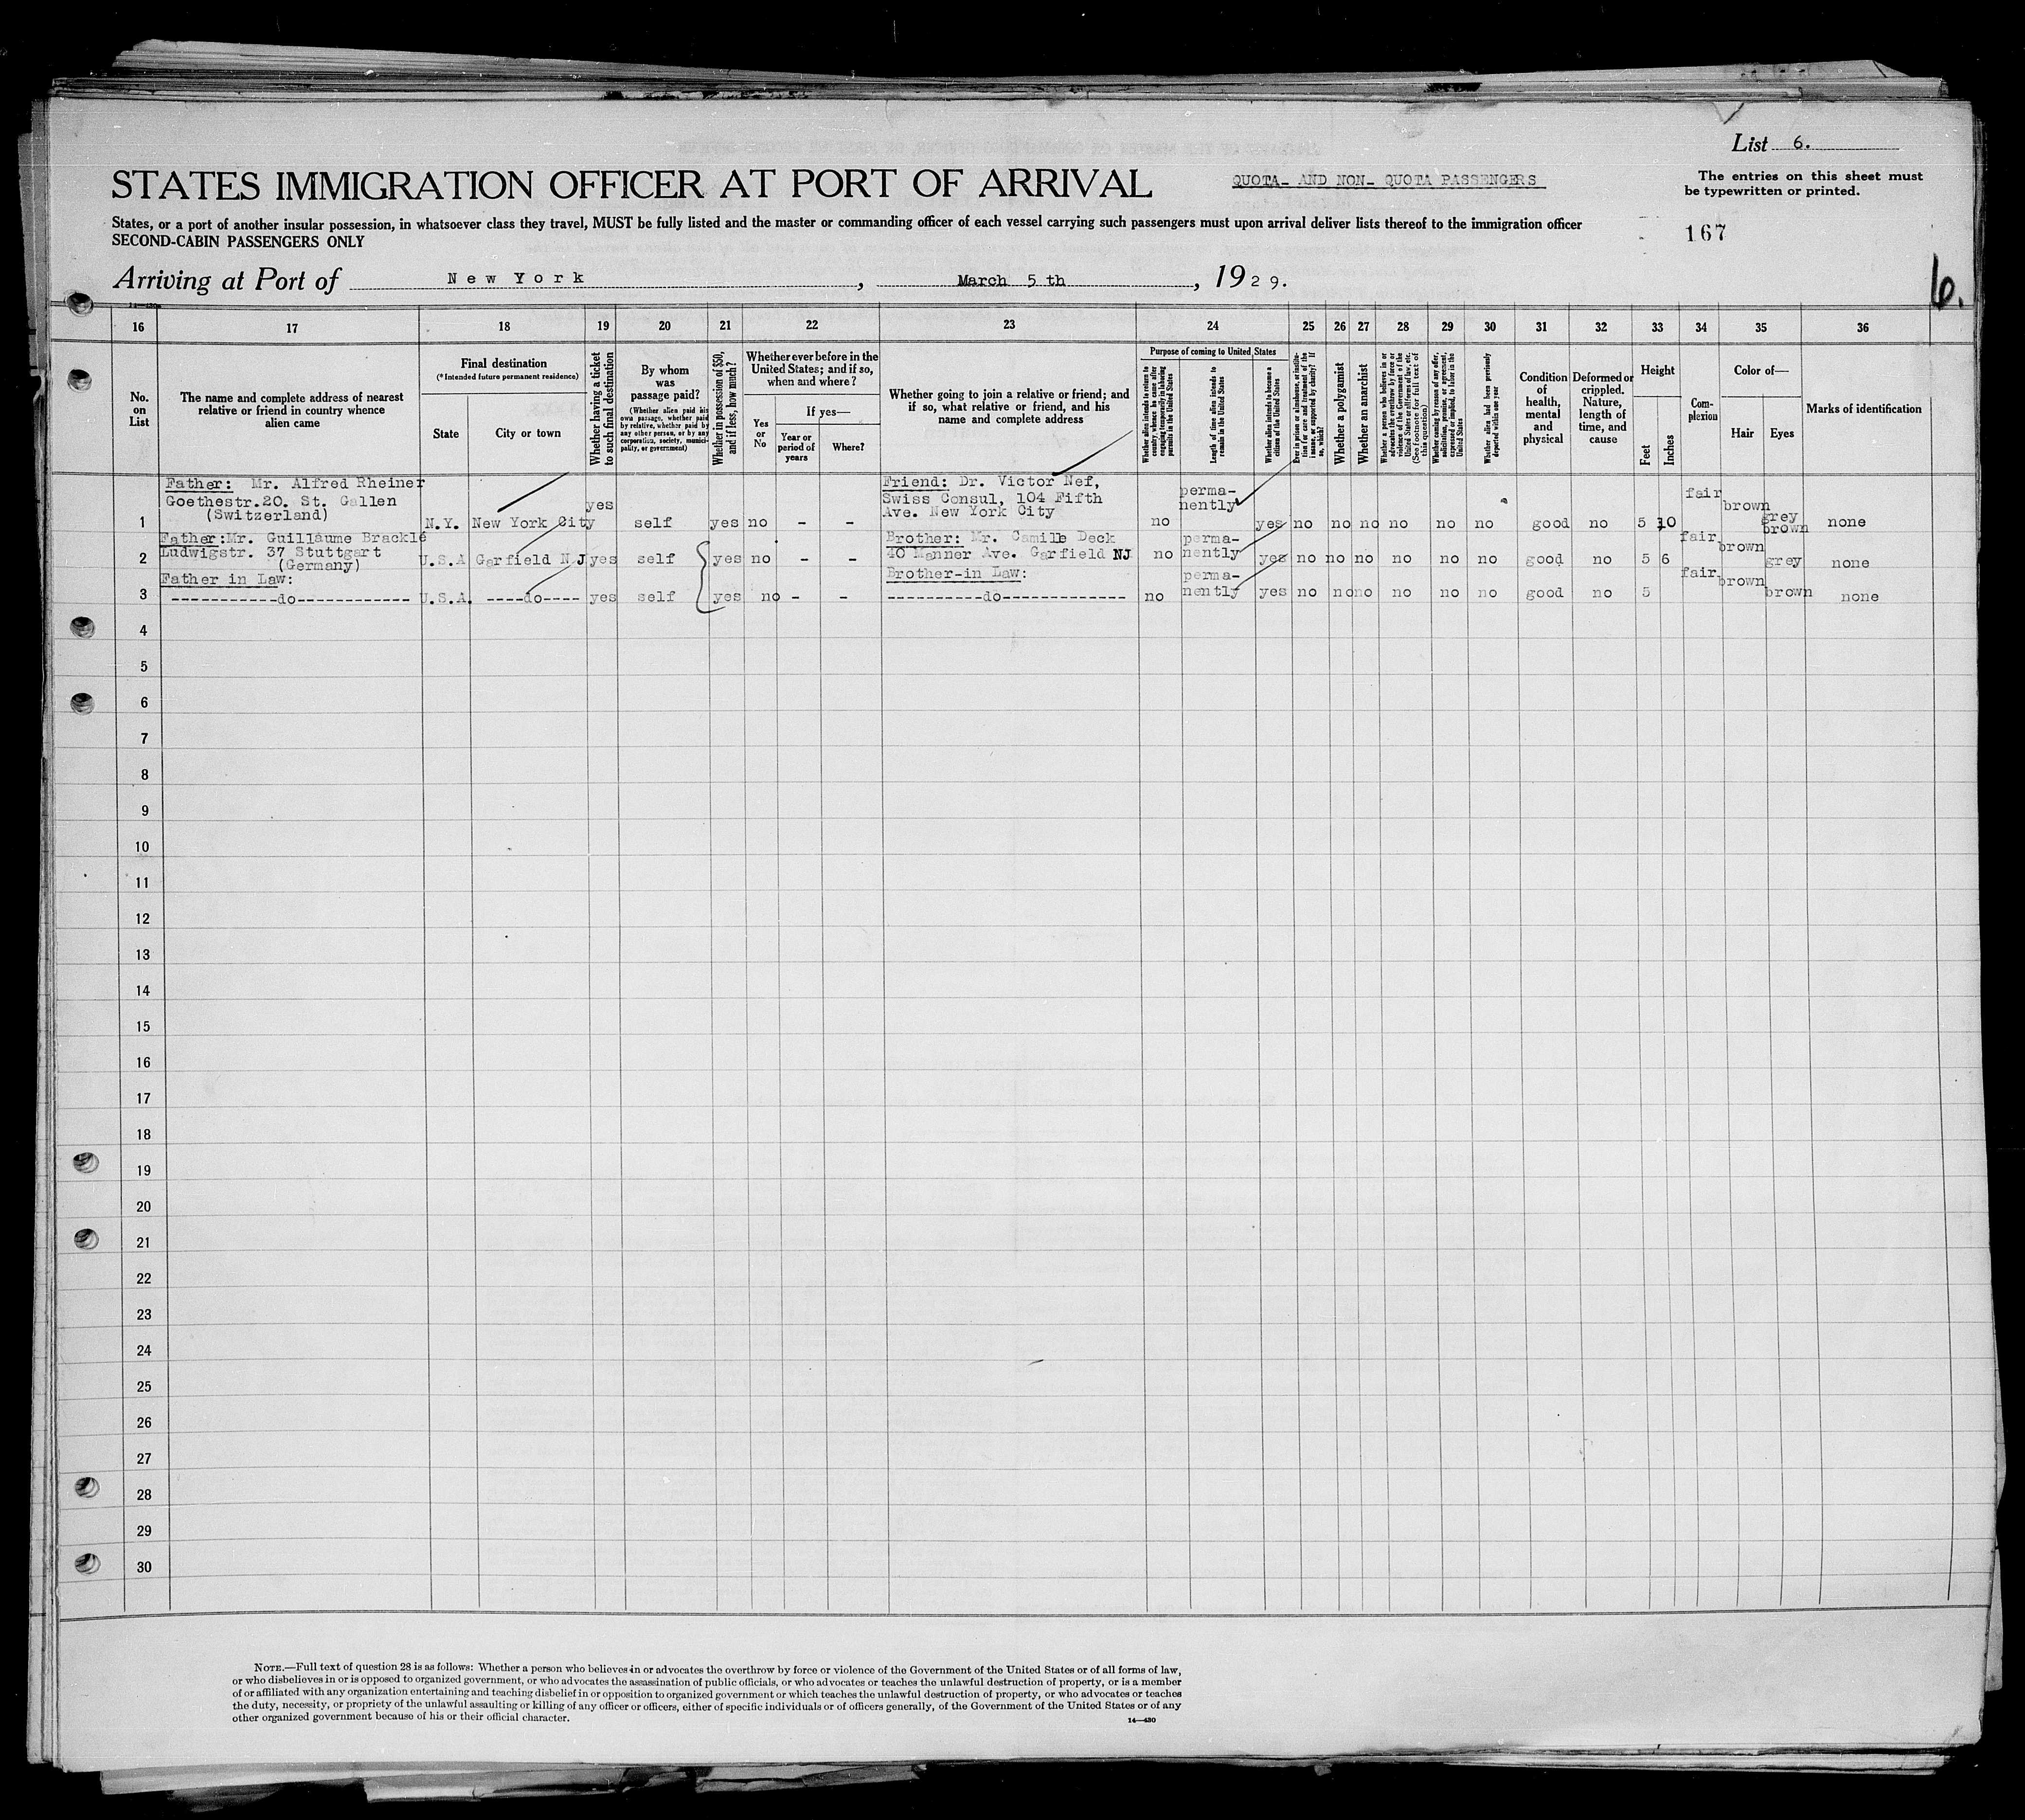 List 6.
STATES IMMIGRATION OFFICER AT PORT OF ARRIVAL
QUOTA- AND NON- QUOTA PASSENGERS
The entries on this sheet must
be typewritten or printed.
States, or a port of another insular possession, in whatsoever class they travel, MUST be fully listed and the master or commanding officer of each vessel carrying such passengers must upon arrival deliver lists thereof to the immigration officer
SECOND-CABIN PASSENGERS ONLY
167
Arriving at Port of New York, March 5 th, 1929.
6.
16 17 18 19 20 21 22 23 24 25 26 27 28 29 30 31 32 33 34 35 36
No.
on
List
The name and complete address of nearest
relative or friend in country whence
alien came
Final destination
(*Intended future permanent residence)
State
City or town
Whether having a ticket
to such final destination
By whom
was
passage paid?
(Whether alien paid his
own passage, whether paid
by relative, whether paid by
any other person, or by any
corporation, society, munici-
pality, or government)
Whether in possession of $50,
and if less, how much?
Whether ever before in the
United States; and if so,
when and where?
Yes
or
No
If yes—
Year or
period of
years
Where?
Whether going to join a relative or friend; and
if so, what relative or friend, and his
name and complete address
Purpose of coming to United States
Whether alien intends to return to
country whence he came after
engaging temporarily in laboring
pursuits in the United States
Length of time alien intends to
remain in the United States
Whether alien intends to become a
citizen of the United States
Ever in prison or almshouse, or institu-
tion for care and treatment of the
insane, or supported by charity? If
so, which?
Whether a polygamist
Whether an anarchist
Whether a person who believes in or
advocates the overthrow by force or
violence of the Government of the
United States or all forms of law, etc.
(See footnote for full text of
this question)
Whether coming by reason of any offer,
solicitation, promise, or agreement,
expressed or implied, to labor in the
United States
Whether alien had been previously
deported within one year
Condition
of
health,
mental
and
physical
Deformed or
crippled.
Nature,
length of
time, and
cause
Height
Feet
Inches
Com-
plexion
Color of—
Hair
Eyes
Marks of identification
Father: Mr. Alfred Rheiner
Goethestr.20. St. Gallen
(Switzerland)
1 N.Y. New York City yes self yes no - -
Friend: Dr. Victor Nef,
Swiss Consul, 104 Fifth
Ave. New York City
no perma-
nently yes no no no no no no good no 5 10 fair brown grey
brown none
Father:Mr. Guillaume Bracklé
Ludwigstr. 37 Stuttgart
(Germany)
2 U.S.A Garfield N.J yes self yes no - -
Brother: Mr. Camille Deck
40 Manner Ave. Garfield NJ
no perma-
nently yes no no no no no no good no 5 6 fair brown grey none
Father in Law:
3 -----------do----------- U.S.A. ----do---- yes self yes no - -
Brother-in Law:
----------do-------------
no perma-
nently yes no no no no no no good no 5 fair brown brown none
4
5
6
7
8
9
10
11
12
13
14
15
16
17
18
19
20
21
22
23
24
25
26
27
28
29
30
NOTE.—Full text of question 28 is as follows: Whether a person who believes in or advocates the overthrow by force or violence of the Government of the United States or of all forms of law,
or who disbelieves in or is opposed to organized government, or who advocates the assassination of public officials, or who advocates or teaches the unlawful destruction of property, or is a member
of or affiliated with any organization entertaining and teaching disbelief in or opposition to organized government or which teaches the unlawful destruction of property, or who advocates or teaches
the duty, necessity, or propriety of the unlawful assaulting or killing of any officer or officers, either of specific individuals or of officers generally, of the Government of the United States or of any
other organized government because of his or their official character.
14—430